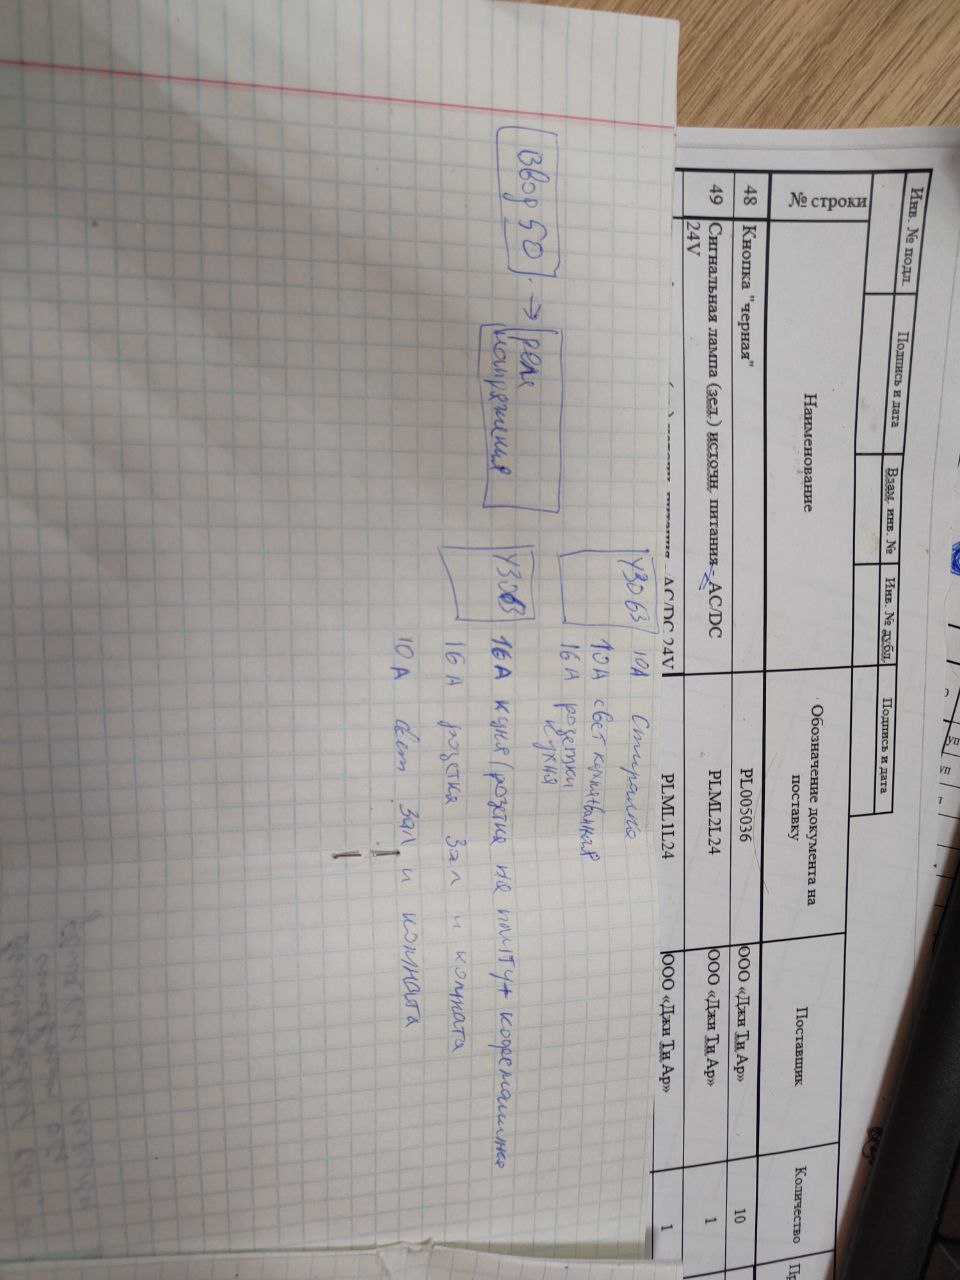 Инв. № подл.
Подпись и дата
Взам. инв. №
Инв. № дубл.
Подпись и дата
№ строки
Наименование
Обозначение документа на
поставку
Поставщик
Количество
48
Кнопка "черная"
PL005036
ООО «Джи Ти Ар»
10
49
Сигнальная лампа (зел.) источн. питания - AC/DC
24V
PLML2L24
ООО «Джи Ти Ар»
1
AC/DC 24V
PLML1L24
ООО «Джи Ти Ар»
1
УЗО 63
10А стиралка
10А свет кухня+ванная
16А розетки
кухня
Ввод 50 → реле
напряжения
УЗО 63
16А кухня (розетка на плиту + кофемашинка
16А розетка зал и комната
10А свет зал и комната